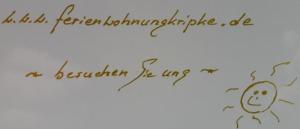 w.w.w. ferienwohnungkripke.de
~ besuchen Sie uns ~